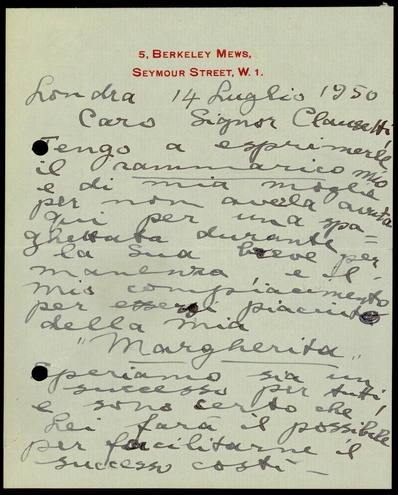 5, BERKELEY MEWS,
SEYMOUR STREET, W. 1.
Londra 14 Luglio 1950
Caro Signor Clausetti,
Tengo a esprimerle
il rammarico mio
e di mia moglie
per non averla avuta
qui per una spa=
ghettata durante
la sua breve per
manenza e il
mio compiacimento
per esserle piaciuta
della mia
"Margherita"
Speriamo sia un
successo per tutti!
e sono certo che
Lei farà il possibile
per facilitarne il
successo costì –